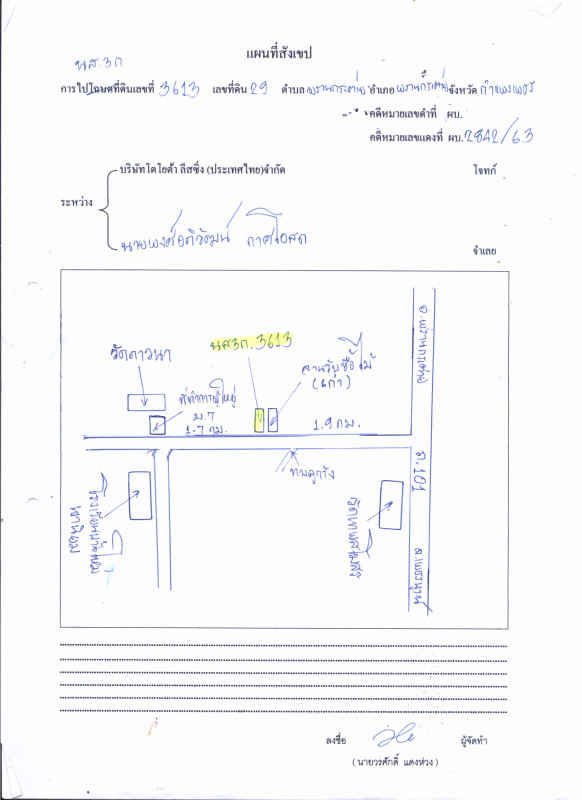 แผนที่สังเขป
นส.3ก
การไปโฉนดที่ดินเลขที่ 3613 เลขที่ดิน 29 ตำบล พรานกระต่าย อำเภอ พรานกระต่าย จังหวัด กำแพงเพชร
คดีหมายเลขดำที่ ผบ.
คดีหมายเลขแดงที่ ผบ. 2842/63
บริษัทโตโยต้า ลีสซิ่ง (ประเทศไทย)จำกัด โจทก์
ระหว่าง
จำเลย
อ.พรานกระต่าย
นส3ก.3613
วัดดาวนา
ลานรับซื้อไม้
(เก่า)
ที่ทำการผู้ใหญ่
ม.7
1.7 กม. 1.9 กม.
ถ.101
ลงชื่อ ผู้จัดทำ
(นายวรศักดิ์ แดงห่วง)